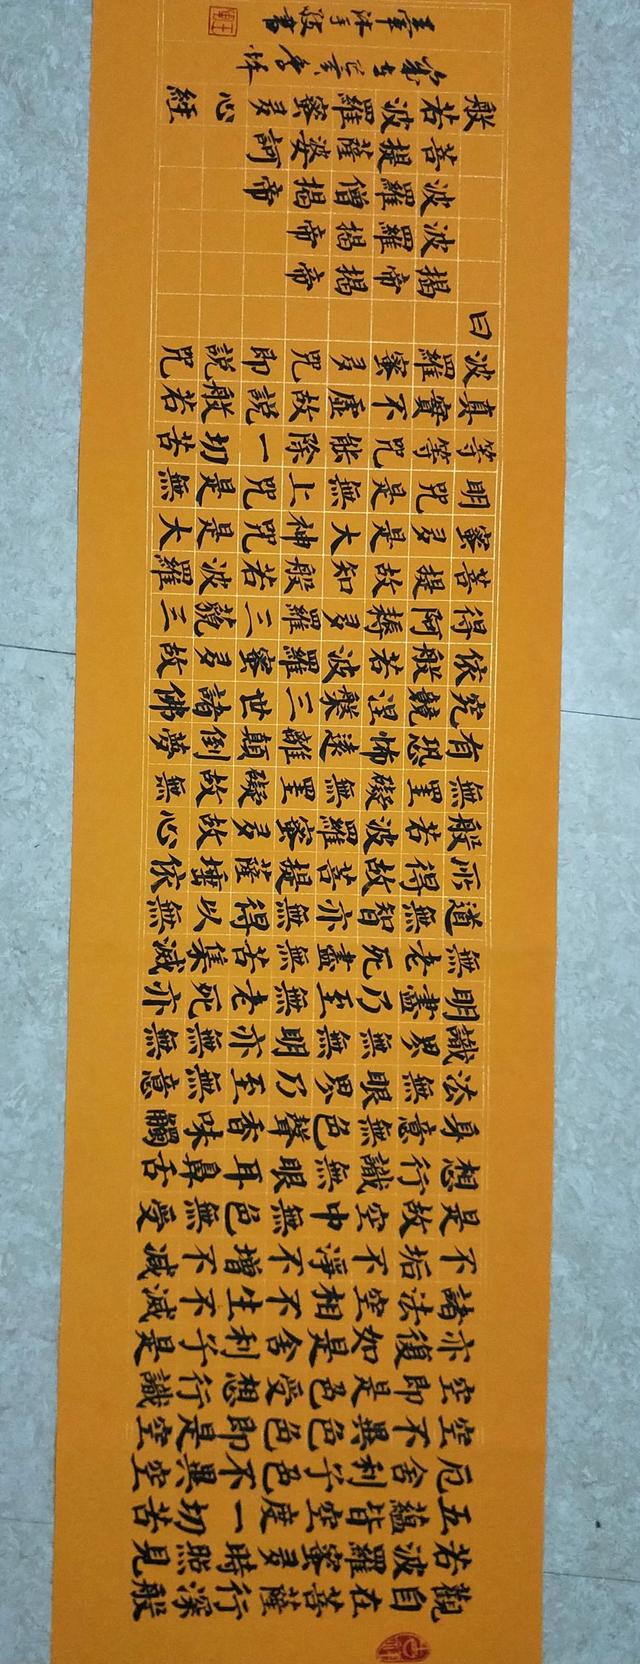 觀自在菩薩行深般
若波羅蜜多時照見
五蘊皆空度一切苦
厄舍利子色不異空
空不異色色即是空
空即是色受想行識
亦復如是舍利子是
諸法空相不生不滅
不垢不淨不增不減
是故空中無色無受
想行識無眼耳鼻舌
身意無色聲香味觸
法無眼界乃至無意
識界無無明亦無無
明盡乃至無老死亦
無老死盡無苦集滅
道無智亦無得以無
所得故菩提薩埵依
般若波羅蜜多故心
無罣礙無罣礙故無
有恐怖遠離顛倒夢
究竟涅槃三世諸佛
依般若波羅蜜多故
得阿耨多羅三藐三
菩提故知般若波羅
蜜多是大神咒是大
明咒是無上咒是無
等等咒能除一切苦
真實不虛故說般若
波羅蜜多咒即說咒
曰
揭帝揭帝
波羅揭帝
波羅僧揭帝
菩提薩婆訶
般若波羅蜜多心經
沐手敬書